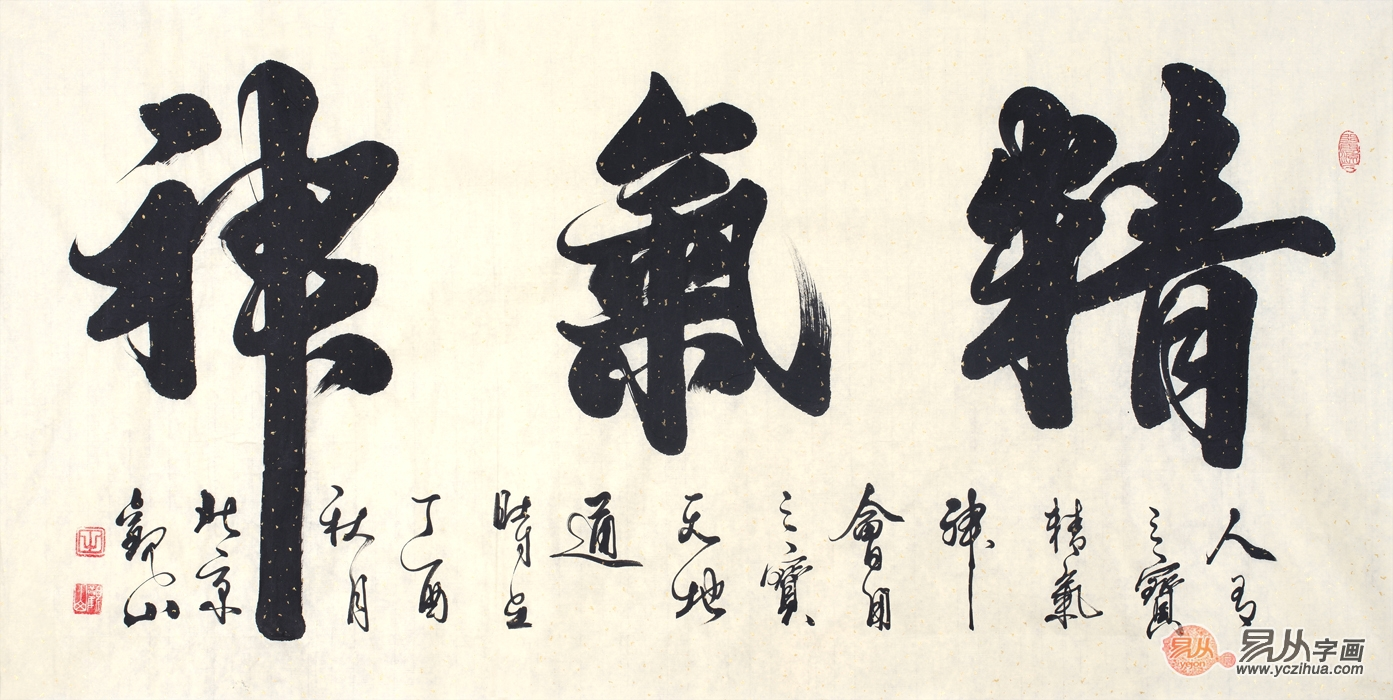 精氣神
人有
三寶
精氣
神
會用
三寶
天地
通
時在
丁酉
秋月
北京
觀山
易从
易从字画
www.yczihua.com